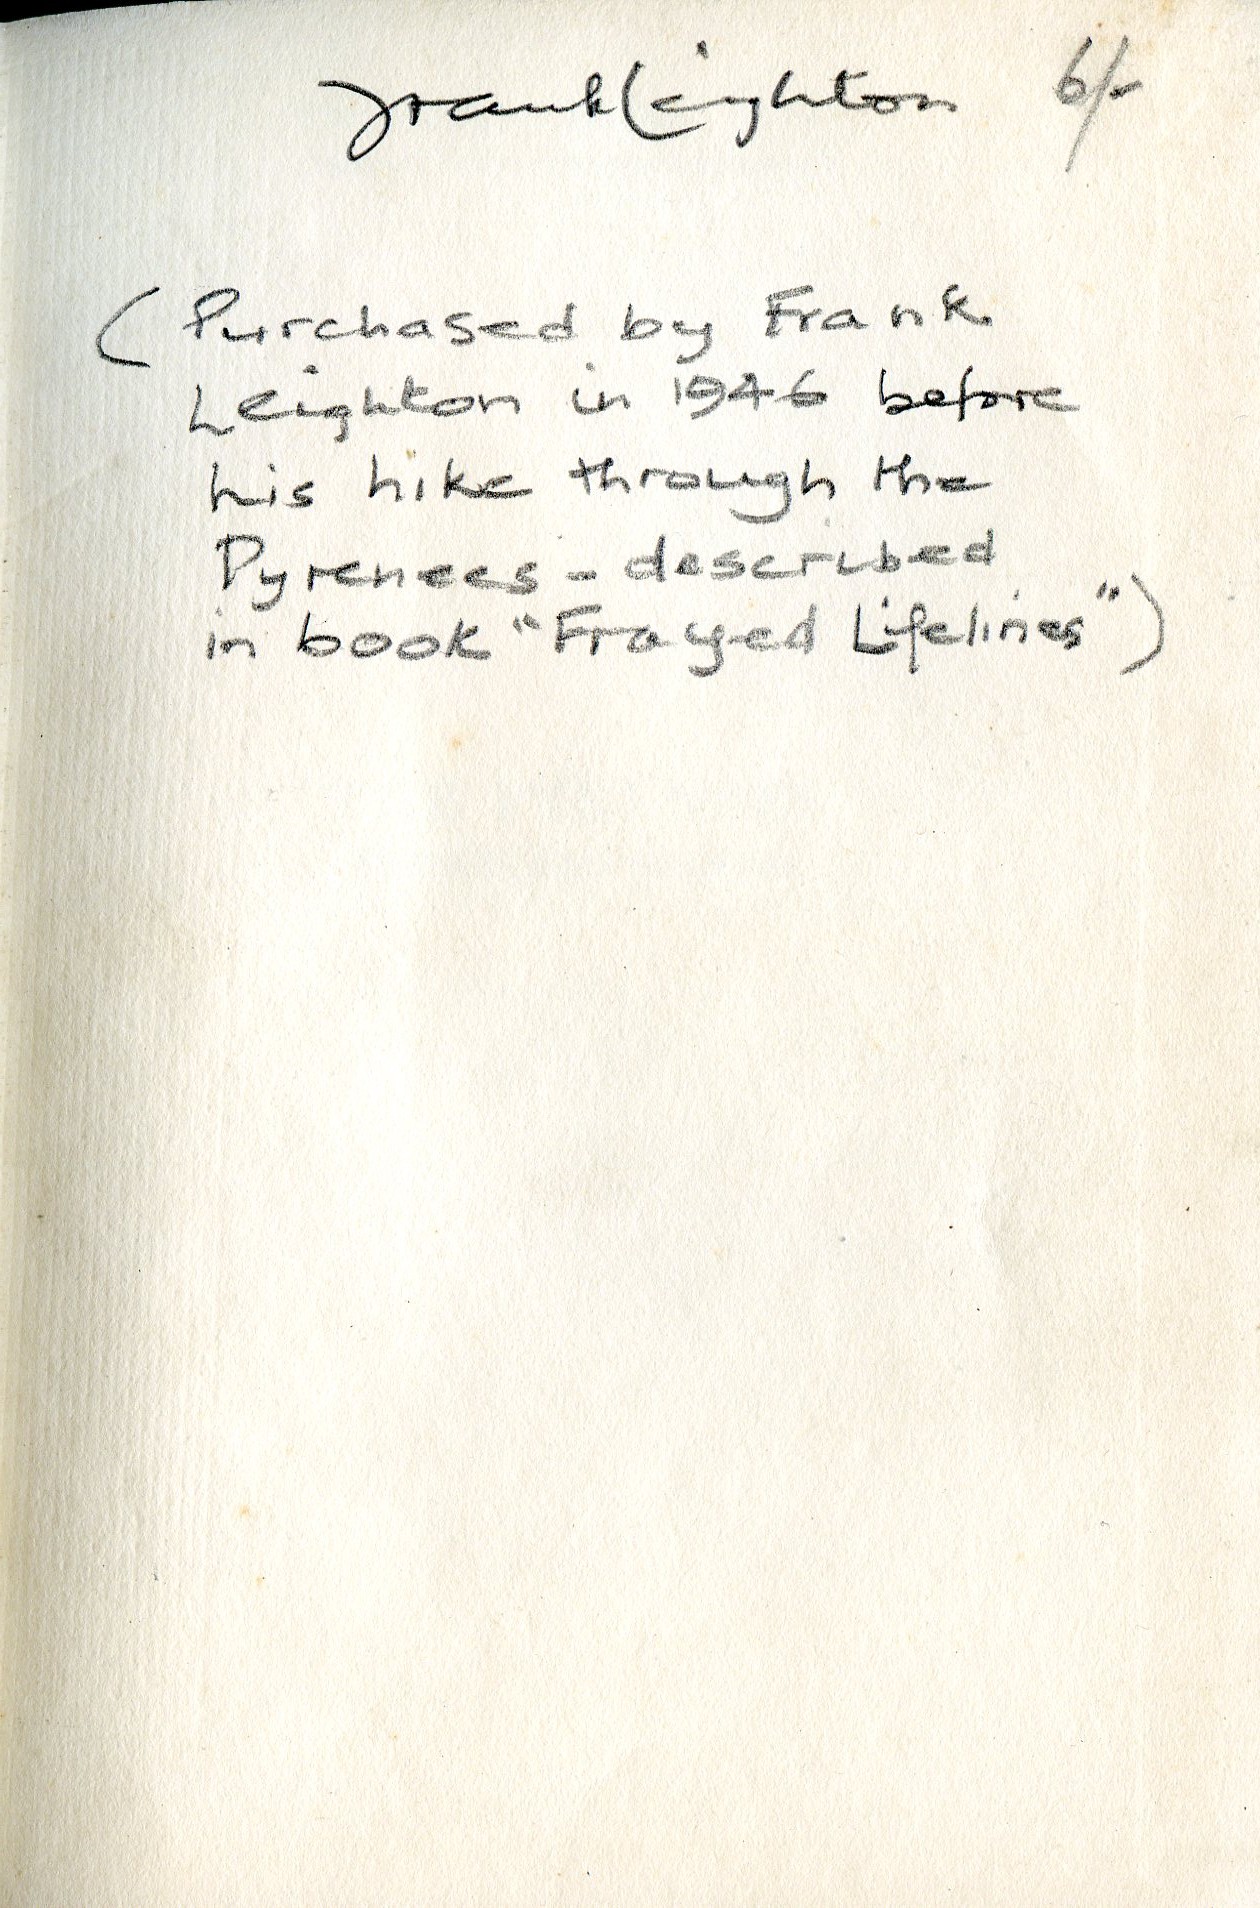 Frank Leighton 6/-
(Purchased by Frank
Leighton in 1946 before
his hike through the
Pyrenees - described
in book "Frayed Lifelines")